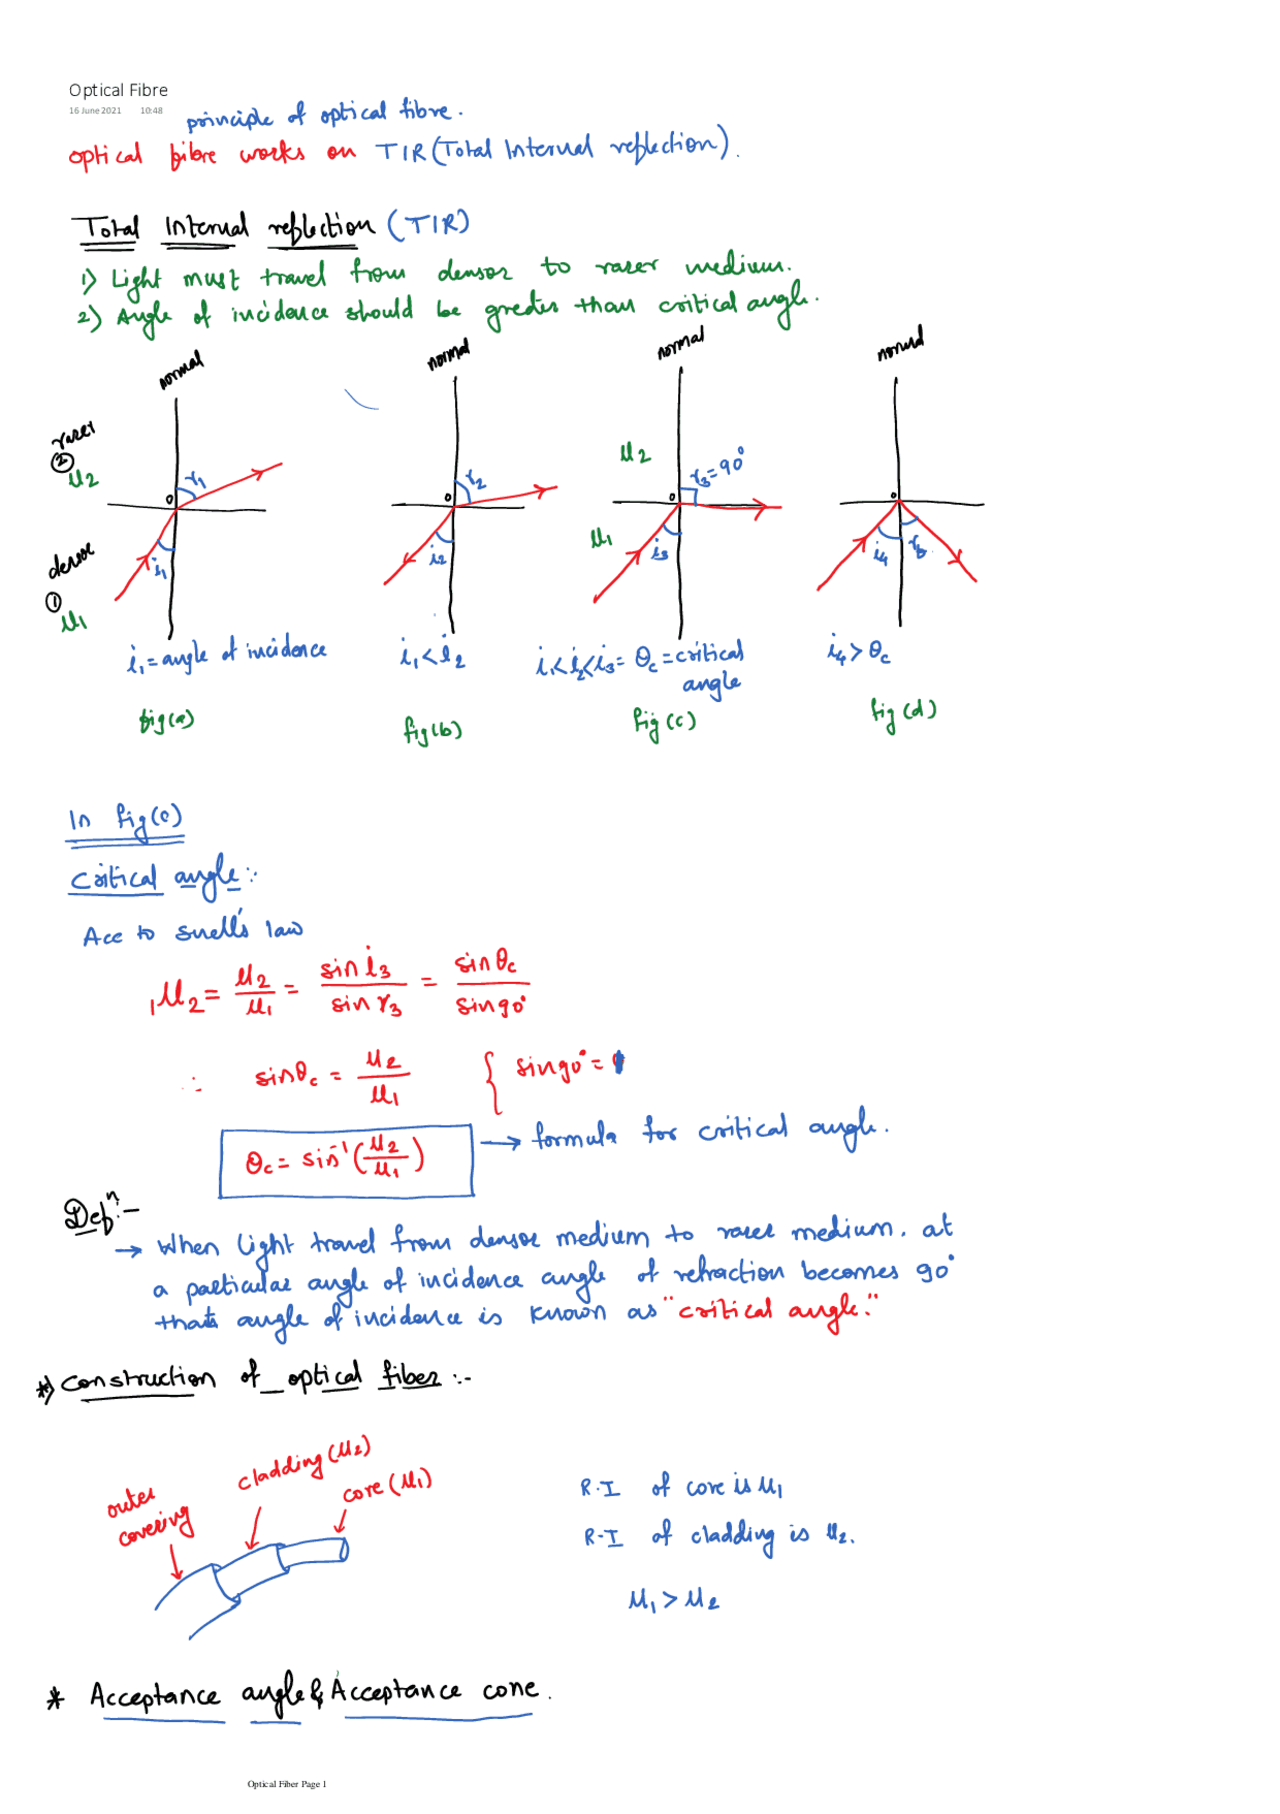 Optical Fibre
16 June 2021 10:48
principle of optical fibre.
optical fibre works on TIR (Total Internal reflection).
Total Internal reflection (TIR)
1) Light must travel from densor to rarer medium.
2) Angle of incidence should be greater than critical angle.
normal normal normal normal
rarer
2
μ2
r1 r2 μ2 r3=90° 
0 0 0 0
densor
1
μ1
i1 i2 μ1 i3 i4
i1=angle of incidence
i1<i2
i1<i2<i3= θc=critical angle
i4>θc
fig(a) fig(b) fig(c) fig(d)
In fig(c)
Critical angle:-
Acc to snell's law
1μ2 = μ2/μ1 = sin i3/sin r3 = sin θc/sin 90°
∴ sinθc = μ2/μ1 { sin90° = 1
θc = sin⁻¹(μ2/μ1) → formula for critical angle.
Defn:-
→ When light travel from densor medium to rarer medium. at
a particular angle of incidence angle of refraction becomes 90°
that angle of incidence is known as "critical angle."
*) Construction of optical fiber :-
outer covering
cladding (μ2)
core (μ1)
R.I of core is μ1
R.I of cladding is μ2.
μ1 > μ2
* Acceptance angle & Acceptance cone.
Optical Fiber Page 1